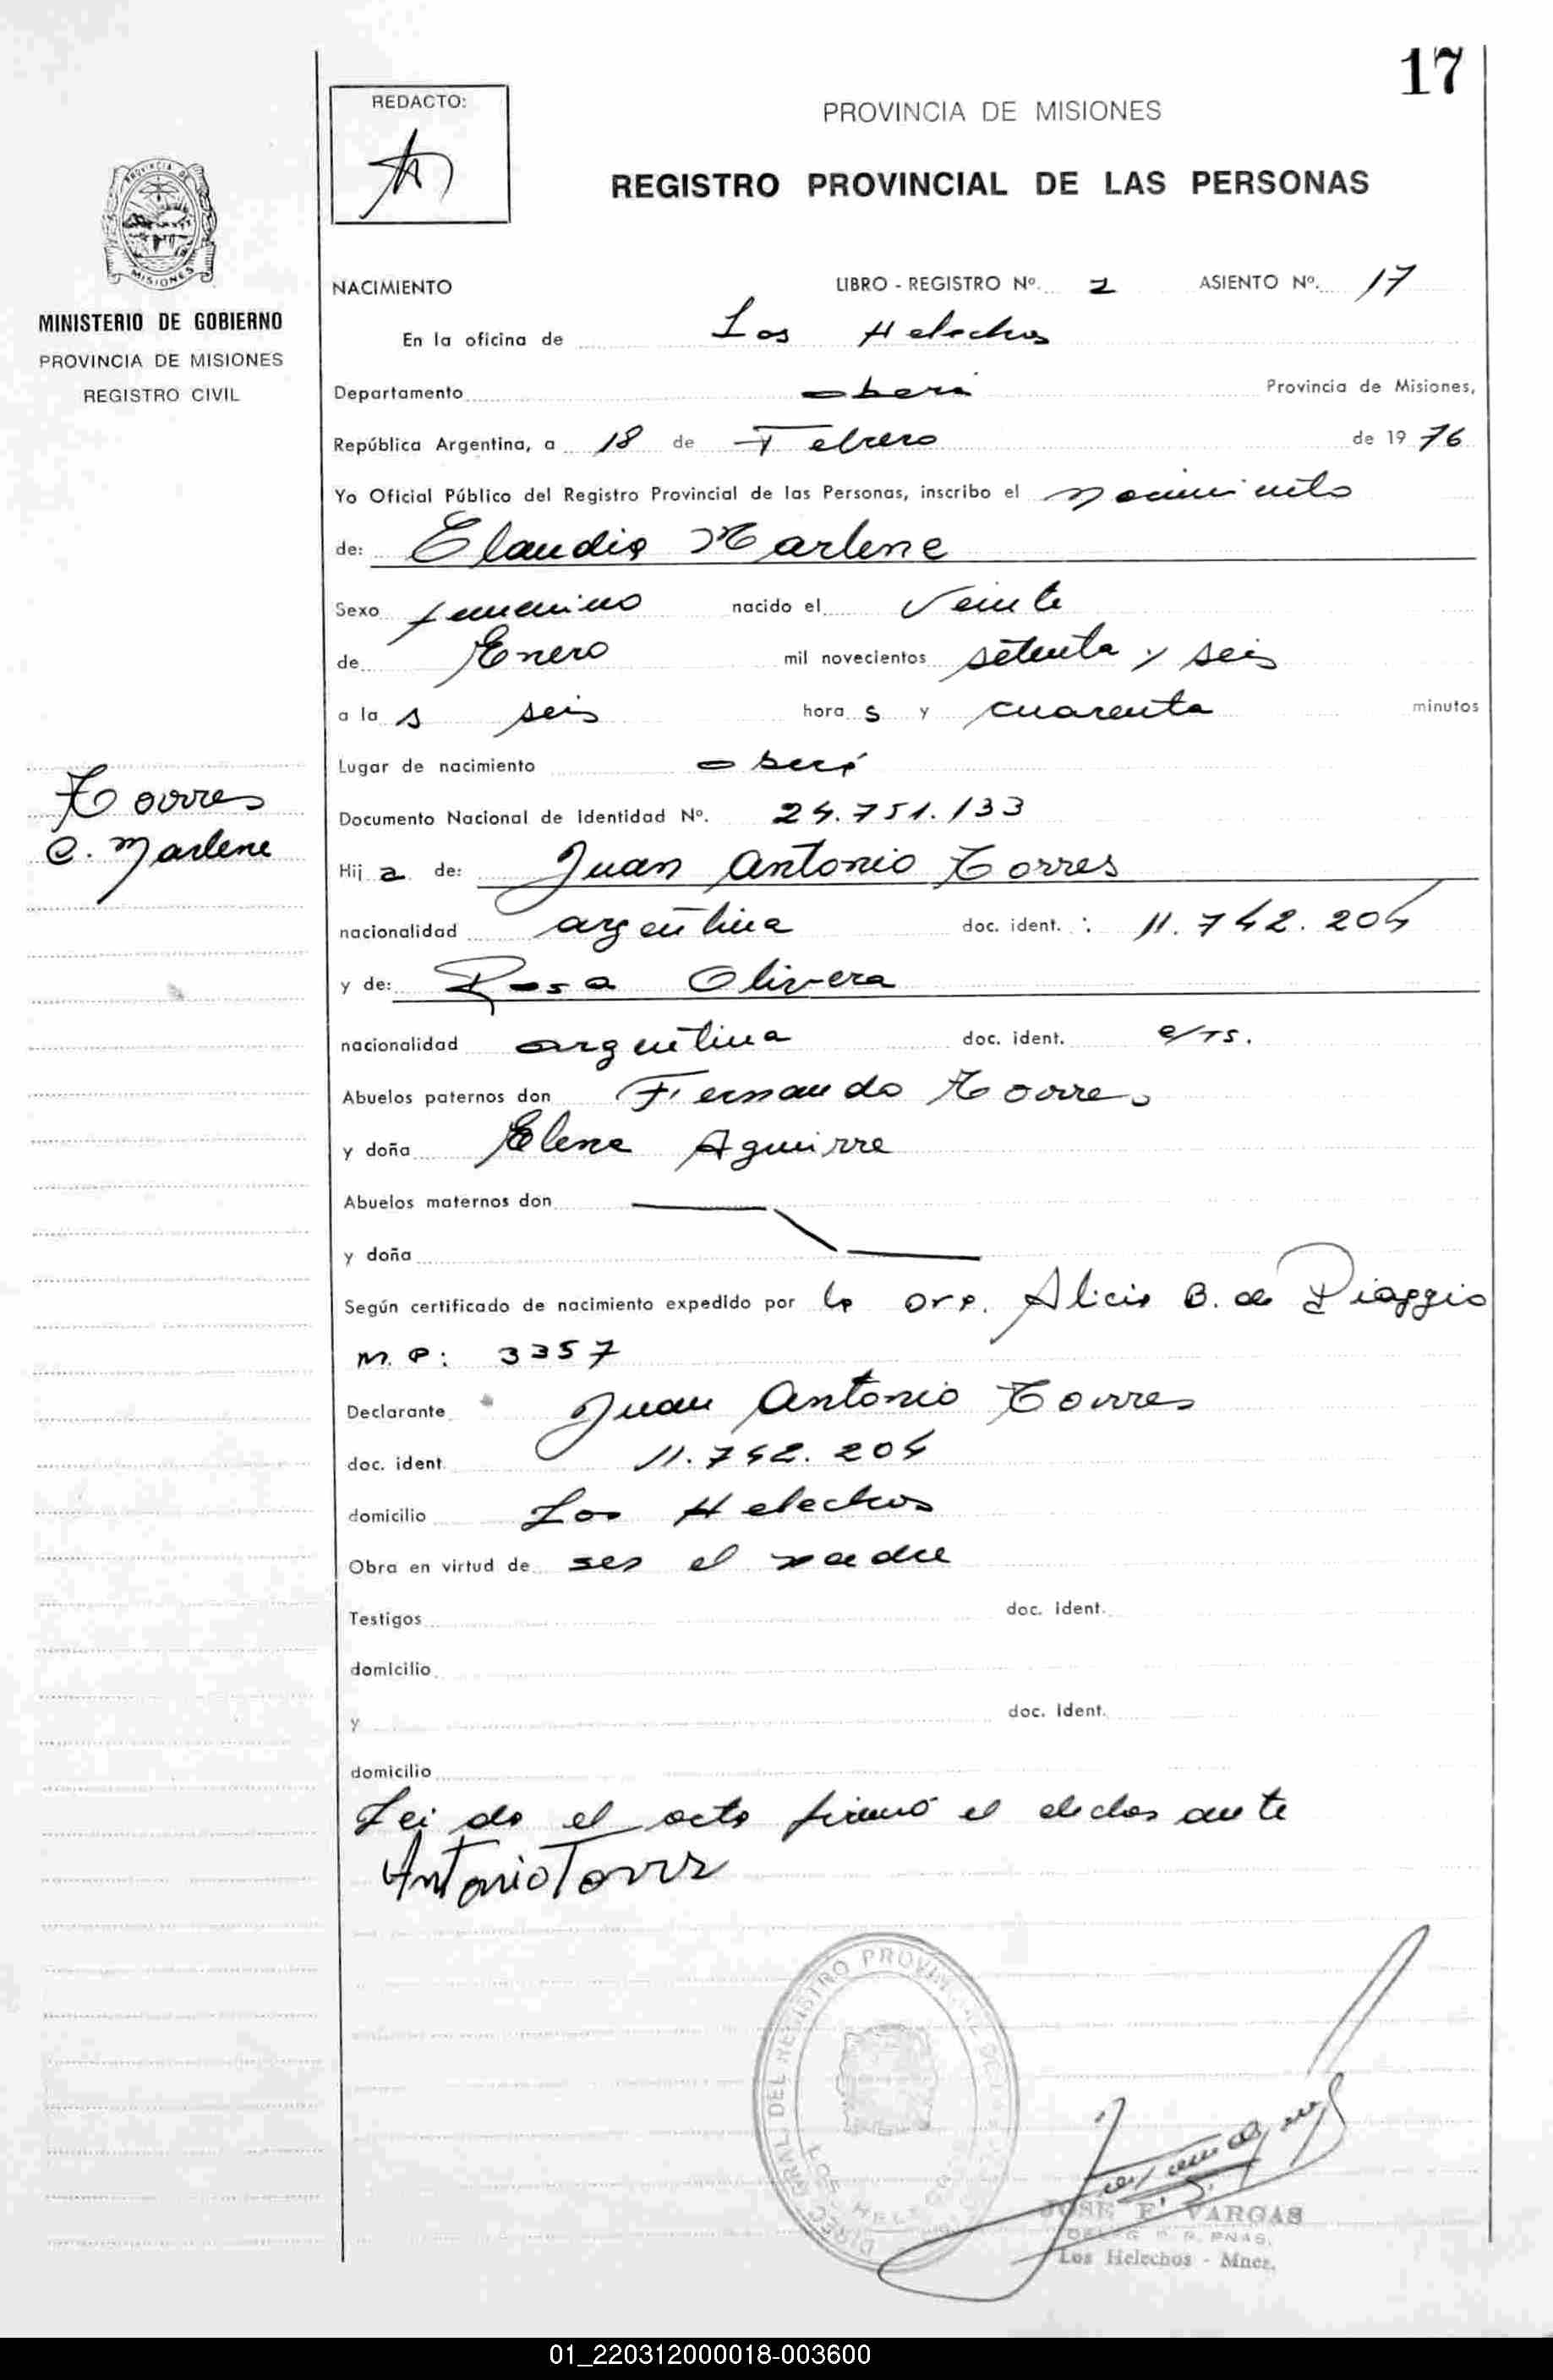 17
REDACTO:
PROVINCIA DE MISIONES
REGISTRO PROVINCIAL DE LAS PERSONAS
PROVINCIA DE
MISIONES
MINISTERIO DE GOBIERNO
PROVINCIA DE MISIONES
REGISTRO CIVIL
NACIMIENTO LIBRO - REGISTRO Nº. 2 ASIENTO Nº. 17
En la oficina de Los Helechos
Departamento Oberá Provincia de Misiones,
República Argentina, a 18 de Febrero de 1976
Yo Oficial Público del Registro Provincial de las Personas, inscribo el nacimiento
de: Claudia Marlene
Sexo femenino nacido el Veinte
de Enero mil novecientos setenta y seis
a las seis horas y cuarenta minutos
Lugar de nacimiento Oberá
Torres
C. Marlene
Documento Nacional de Identidad Nº. 24.751.133
Hija de: Juan Antonio Torres
nacionalidad argentina doc. ident. : 11.742.204
y de: Rosa Olivera
nacionalidad argentina doc. ident. e/ts.
Abuelos paternos don Fernando Torres
y doña Elena Aguirre
Abuelos maternos don
y doña
Según certificado de nacimiento expedido por la Dra. Alicia B. de Piaggio
M. P: 3357
Declarante Juan Antonio Torres
doc. ident. 11.742.204
domicilio Los Helechos
Obra en virtud de ser el padre
Testigos doc. ident.
domicilio
y doc. ident.
domicilio
Leido el acto firmó el declar ante
Antonio Torres
DIREC. GRAL DEL REGISTRO PROVINCIAL DE LAS
LOS HELECHOS
JOSE F. VARGAS
Los Helechos - Mnes.
01_220312000018-003600